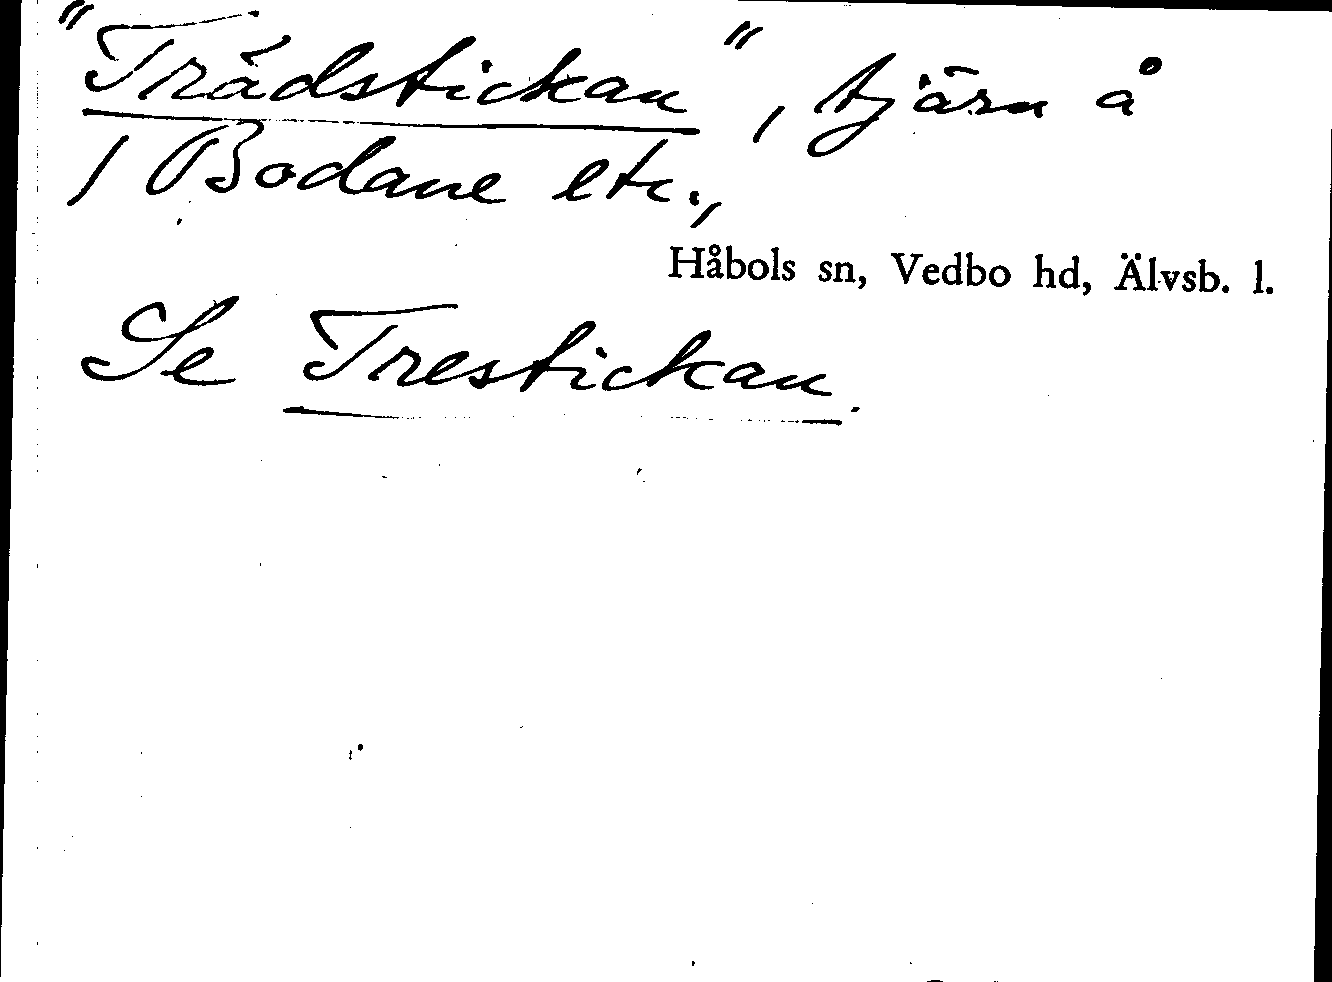 "Trädstickan", tjärn å
1 Bodane etc.,
Håbols sn, Vedbo hd, Älvsb. l.
Se Trestickan.